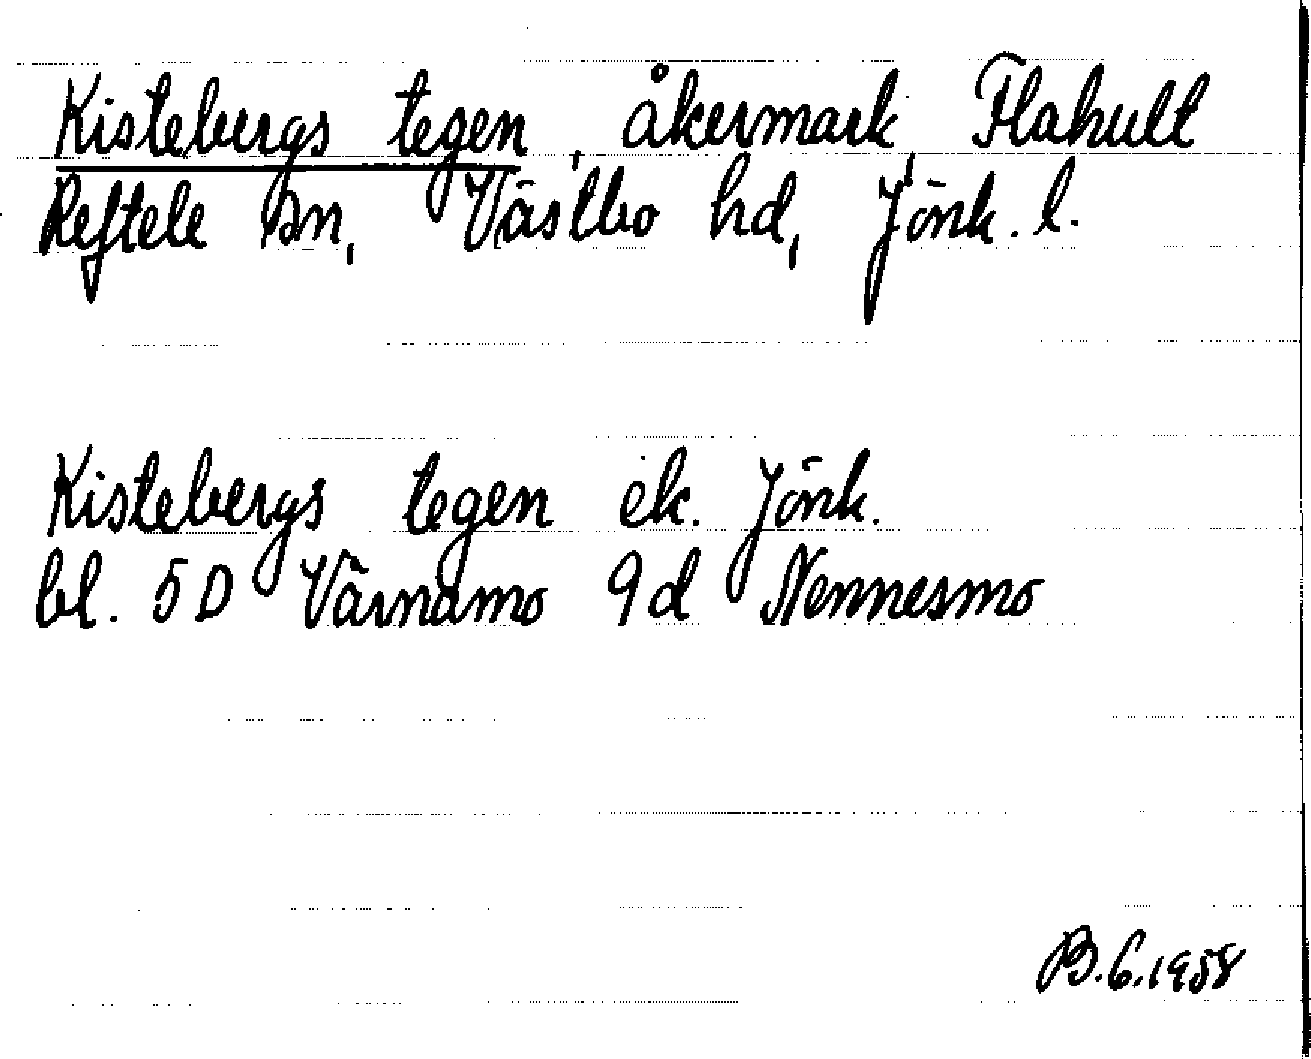 Kistebergs tegen, åkermark, Flahult
Reftele sn, Västbo hd, Jönk. l.
Kistebergs tegen ek. Jönk.
bl. 5D Värnamo 9d Nennesmo
B.6.1958